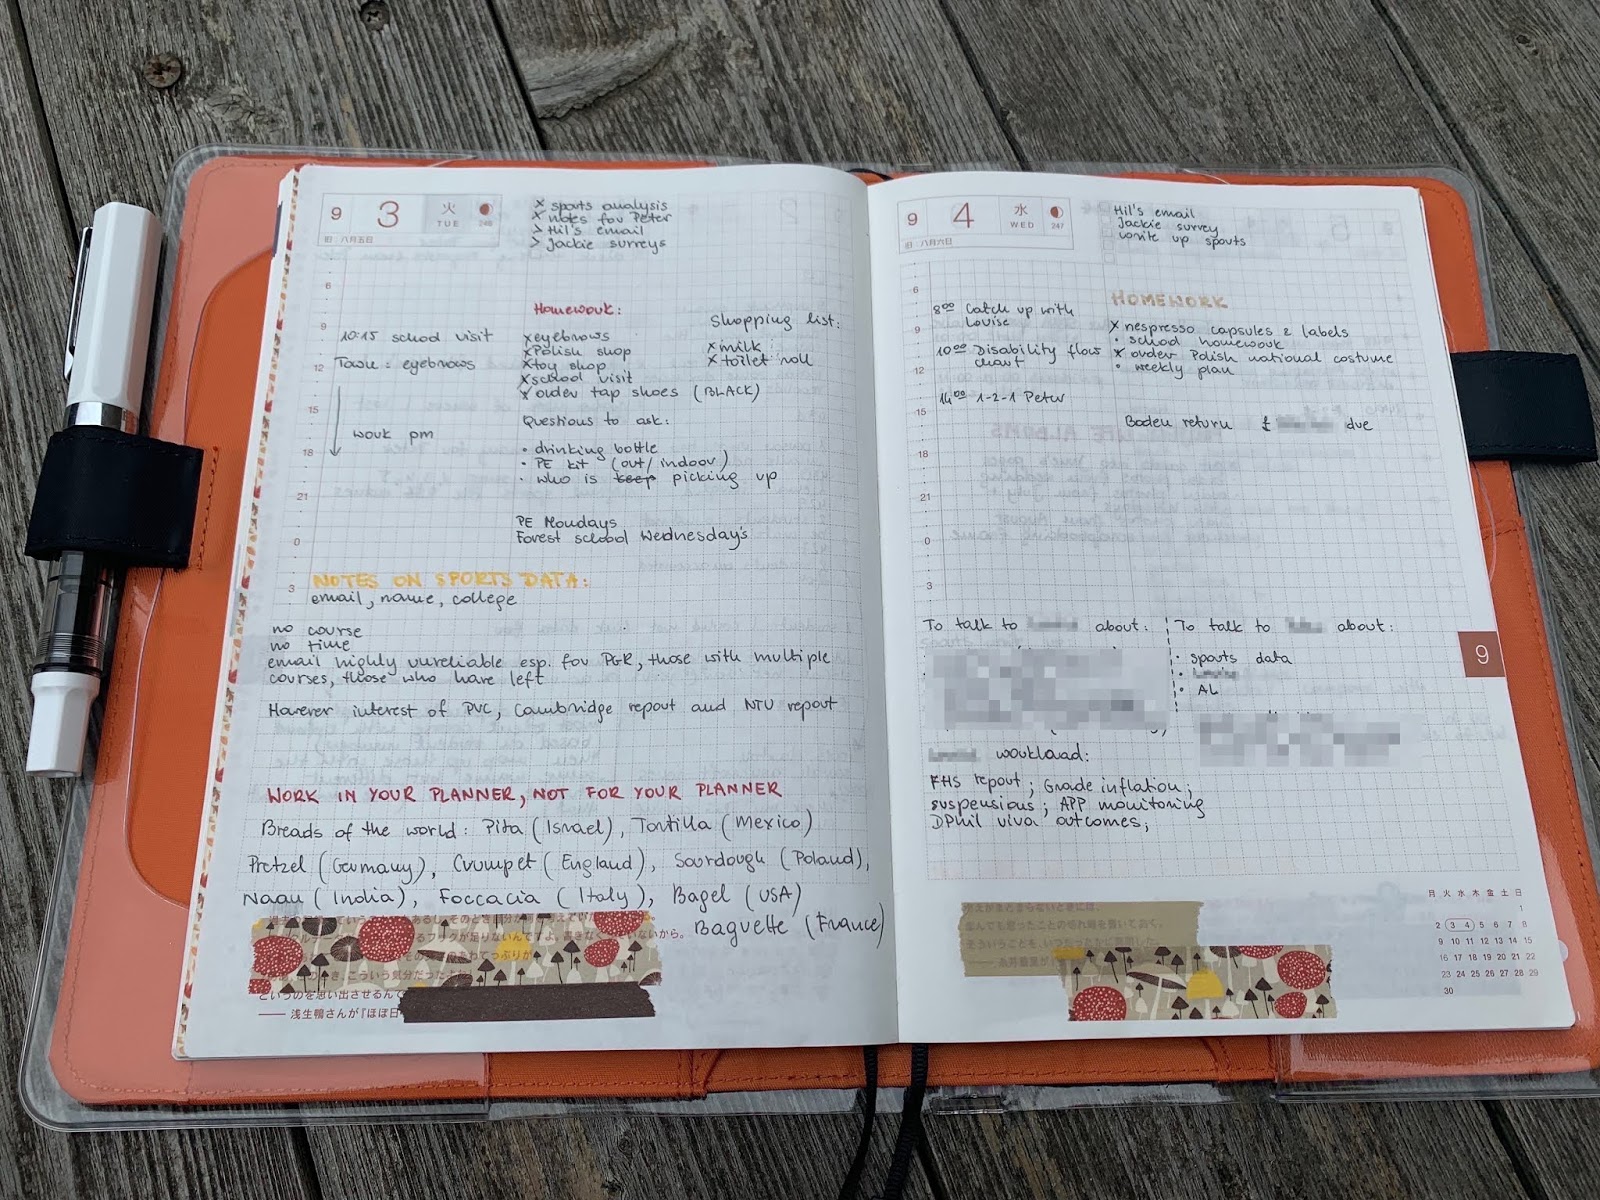 9 3 火 TUE 246
旧 八月五日
x sports analysis
x notes for Peter
> Hil's email
> Jackie surreys
6
9
12
15
18
21
0
3
10:15 school visit
Town: eyebrows
work pm
Homework:
x eyebrows
x Polish shop
x toy shop
x school visit
x order tap shoes (BLACK)
Shopping list:
x milk
x toilet roll
Questions to ask:
• drinking bottle
• PE kit (out/indoor)
• who is keep picking up
PE Mondays
Forest school Wednesday's
NOTES ON SPORTS DATA:
email, name, college
no course
no time
email highly unreliable esp. for PGR, those with multiple
courses, those who have left
However interest of PVC, Cambridge report and NTU report
WORK IN YOUR PLANNER, NOT FOR YOUR PLANNER
Breads of the world: Pita (Israel), Tortilla (Mexico)
Pretzel (Germany), Crumpet (England), Sourdough (Poland),
Naan (India), Foccacia (Italy), Bagel (USA)
Baguette (France)
いから。
というのを思い出させるんで
── 浅生鴨さんが『ほぼ日
9 4 水 WED 247
旧 八月六日
Hil's email
Jackie survey
write up sports
6
9
12
15
18
21
0
3
8:00 Catch up with
Louise
10:00 Disability flow
chart
14:00 1-2-1 Peter
HOMEWORK
x nespresso capsules 2 labels
• school homework
x order Polish national costume
• weekly plan
Boden return £ due
To talk to about:
To talk to about:
• sports data
• AL
workload:
FHS report; Grade inflation;
suspensions; APP monitoring
DPhil viva outcomes;
9
月 火 水 木 金 土 日
1
2 3 4 5 6 7 8
9 10 11 12 13 14 15
16 17 18 19 20 21 22
23 24 25 26 27 28 29
30